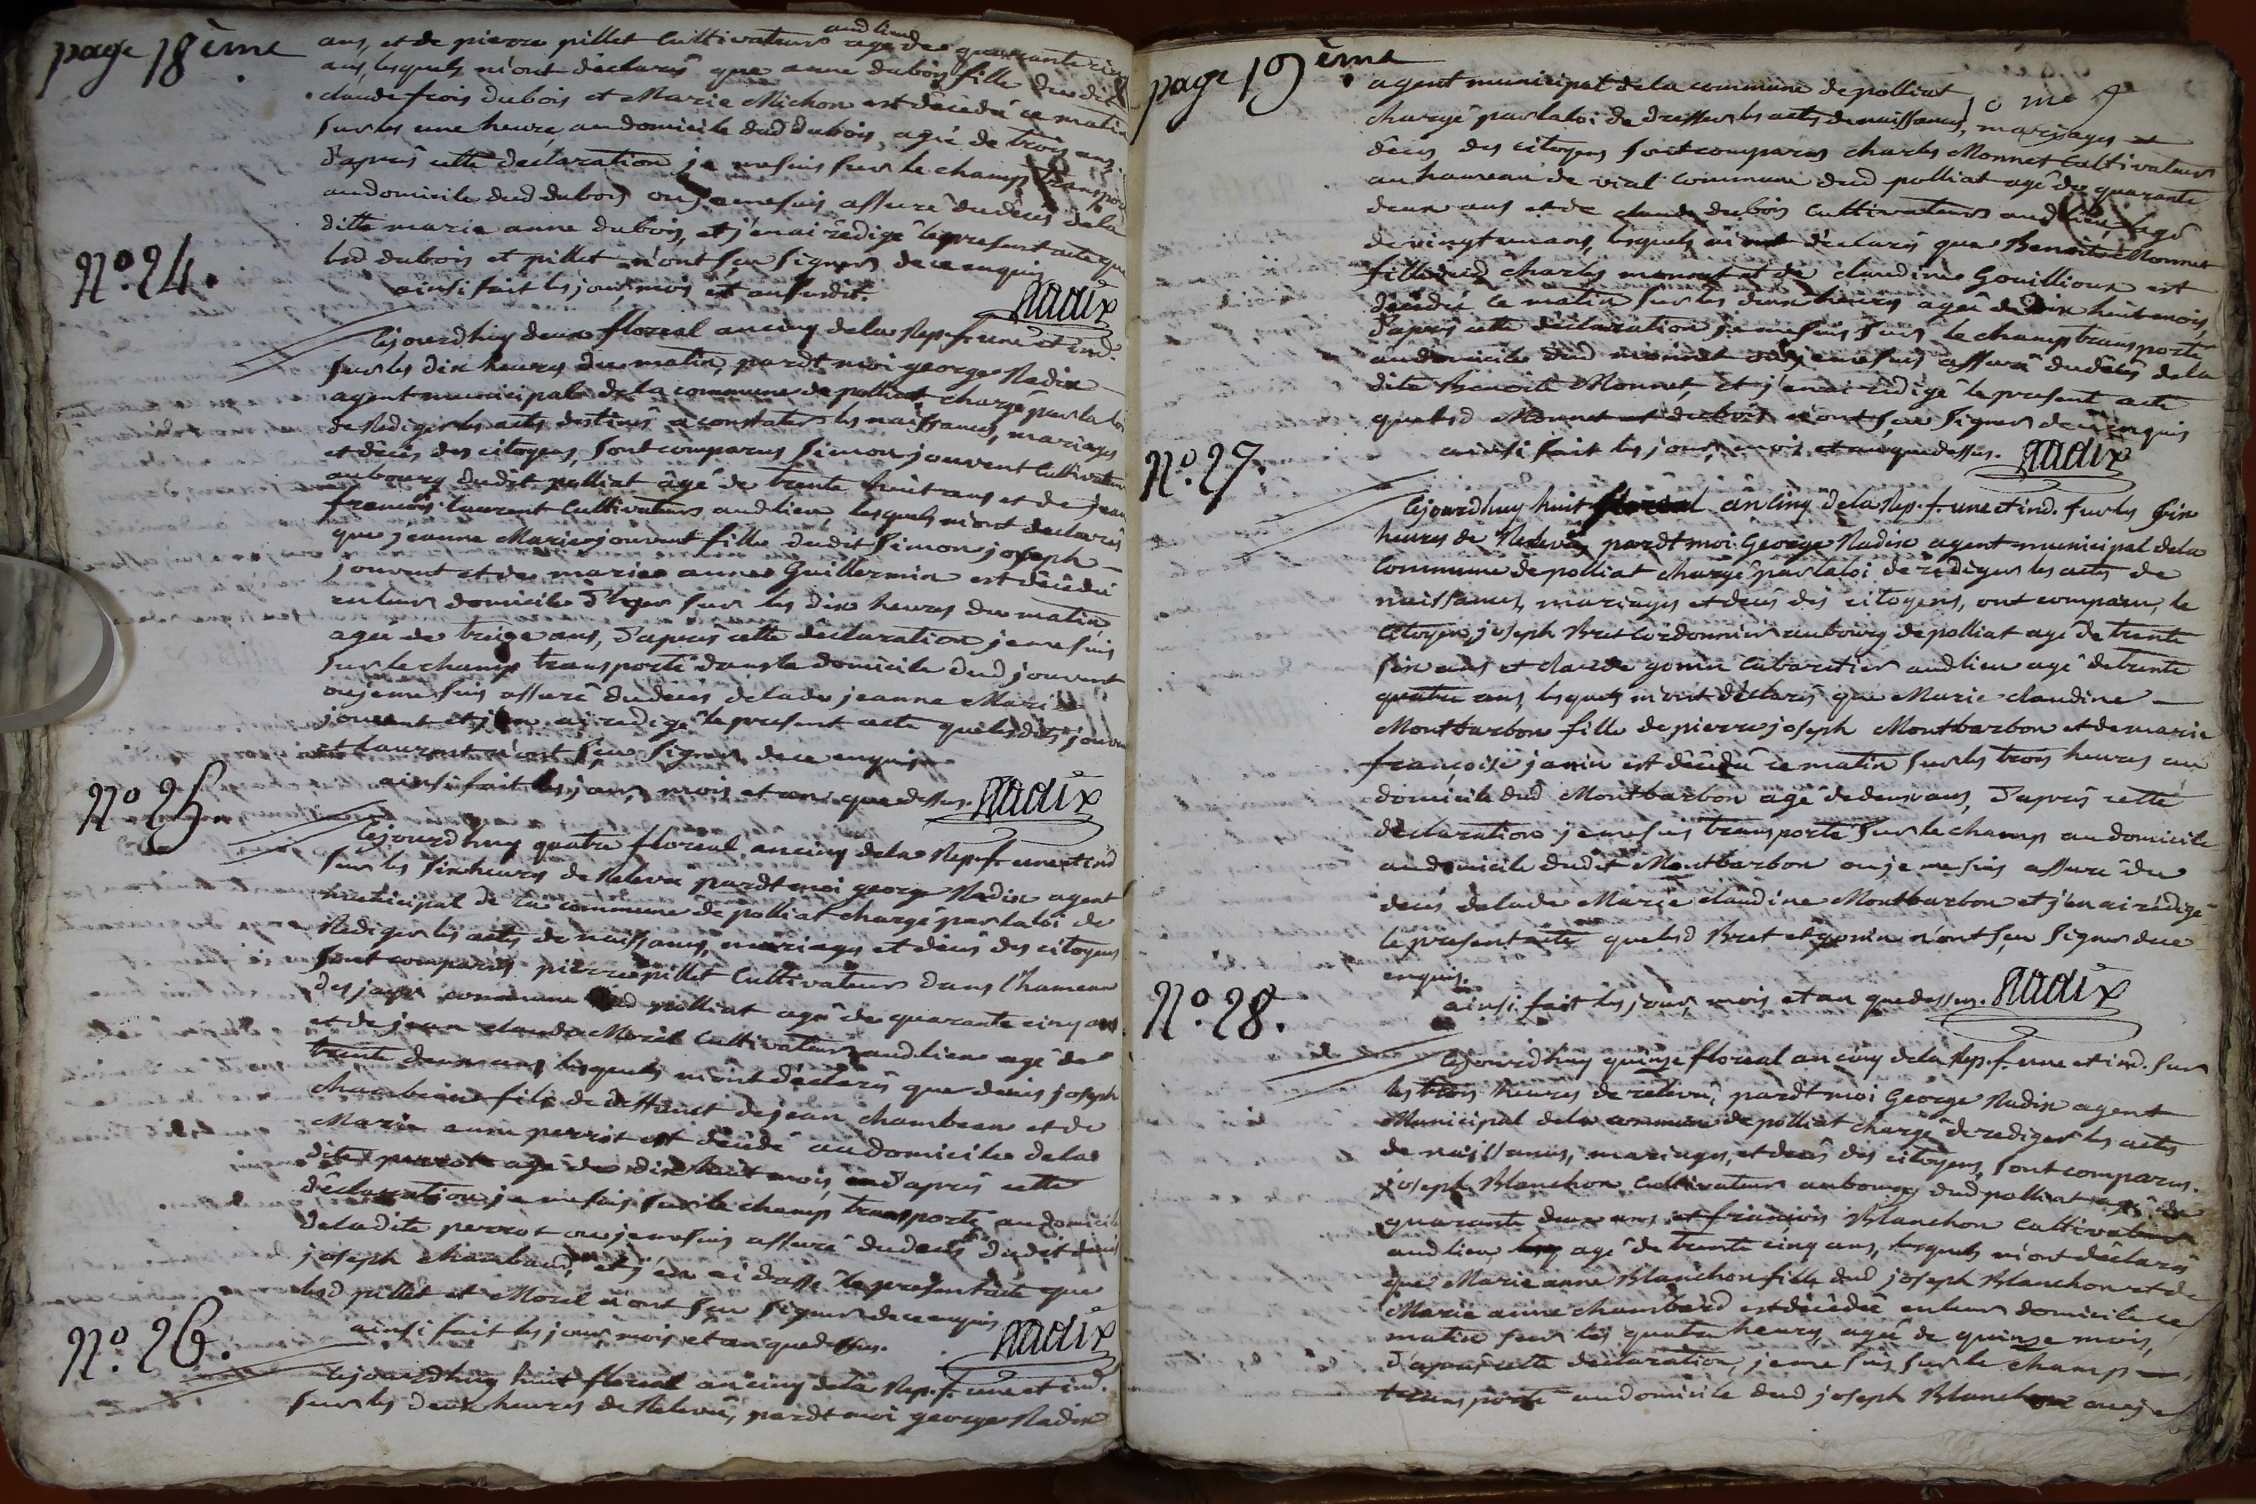 page 18ème
ans, et de pierre pillet Cultivateur audlieu agé de quarante cinq
ans, lesquels m'ont déclaré que anne dubois fille dudit
claude frois dubois et Marie Michon est décédé ce matin
sur les une heure, au domicile dud dubois, agée de trois ans.
D'après cette déclaration je me suis sur le champ transpor
au domicile dud dubois ou je me suis assuré du décès de la
ditte marie anne dubois, et j'en ai rédigé le present acte que
lesd dubois et pillet n'ont sçu signer de ce enquis
ainsi fait les jour, mois et an susdit. Nadix
Nº. 24.
Cejourdhuy deux floreal an cinq de la Rep. f. une et ind.
sur les dix heures du matin, pardt moi george Nadix
agent municipal de la commune de polliat chargé par la loi
de Rediger les actes destinés a constater les naissances, mariages
et décès des citoyens, sont comparus Simon jouvent Cultivateur
au bourg dudit polliat âgé de trente huit ans et de jean
francois laurent Cultivateur audlieu, lesquels m'ont declarés
que jeanne Marie jouvent fille dudit Simon joseph
jouvent et de marie anne Guillermin est décédé
en leur domicile d'hyer sur les dix heures du matin,
agee de treize ans, D'après cette déclaration je me suis
sur le champ transporté dans le domicile dud jouvent
ou je me suis assuré du deces de lade jeanne Marie
jouvent et j'en ai redigé le present acte que lesdits jouven
et laurent n'ont sçu signer de ce enquis
ainsi fait les jour, mois et an que dessus. Nadix
Nº 25
Cejourdhuy quatre floreal an cinq de la Rep. f. une et ind
sur les six heures de Relevée pardt moi george Nadix agent
municipal de la commune de polliat chargé par la loi de
Rediger les actes de naissances, mariages et décès des citoyens
sont comparus pierre pillet Cultivateur dans l'hameau
des jayr commune dud polliat agé de quarante cinq ans
et de jean claude Morel Cultivateur audlieu agé de
trente deux ans, lesquels m'ont déclarés que denis joseph
chambeau fils de deffunct de jean chambeau et de
Marie anne perrot est décédé au domicile de la
dite perrot agé de dix huit mois, D'après cette
déclaration je me suis sur le champ transporté au domicile
de ladite perrot ou je me suis assuré du décès dudit denis
joseph chambaud, et j'en ai dressé le present acte que
lesd pillet et Morel n'ont sçu signer de ce enquis
ainsi fait les jour, mois et an que dessus. Nadix
Nº. 26.
Cejourdhuy huit floreal an cinq de la Rep. f. une et ind.
sur les deux heures de Relevée, pardt moi george Nadix
page 19ème
agent municipal de la commune de polliat
chargé par la loi de dresser les actes de naissances, mariages et
décès des citoyens sont comparus charles Monnet Cultivateur
au hameau de vial commune dud polliat agé de quarante
deux ans et de claude dubois Cultivateur audlieu, agé
de vingt un ans, lesquels m'ont déclarés que Benoite Monnet
fille dud charles monnet et de claudine Gouillioux est
décédée ce matin sur les deux heures agée de dix huit mois,
D'après cette déclaration je me suis sur le champ transporté
au domicile dud monnet ou je me suis assuré du décès de la
dite Benoite Monnet, et j'en ai redigé le present acte
que lesd Monnet et dubois n'ont sçu signer de ce enquis
ainsi fait les jour, mois et an que dessus. Nadix
Nº. 27.
Cejourdhuy huit floréal an cinq de la Rep. f. une et ind. sur les six
heures de Relevée, pardt moi George Nadix agent municipal de la
Commune de polliat chargé par la loi de rédiger les actes de
naissances, mariages et décès des citoyens, ont comparu, le
Citoyen joseph Bret Cordonnier au bourg de polliat agé de trente
six ans et claude gonin Cabaretier audlieu agé de trente
quatre ans, lesquels m'ont déclarés que Marie claudine
Montbarbon fille de pierre joseph Montbarbon et de marie
françoise janin est décédée ce matin sur les trois heures au
domicile dud Montbarbon agé de deux ans, D'après cette
déclaration je me suis transporté sur le champ au domicile
au domicile dudit Montbarbon ou je me suis assuré du
decés de lade Marie claudine Montbarbon et j'en ai rédigé
le present acte que lesd Bret et gonin n'ont sçu signer de ce
enquis.
ainsi fait les jour, mois et an que dessus. Nadix
Nº. 28.
Cejourdhuy quinze floreal an cinq de la Rep. f. une et ind. sur
les trois heures de relevée, pardt moi George Nadix agent
Municipal de la commune de polliat chargé de rediger les actes
de naissances, mariages, et decès des citoyens, sont comparus.
joseph Blanchon Cultivateur au bourg dud polliat agé de
quarante deux ans et francois Blanchon Cultivateur
audlieu agé de trente cinq ans, lesquels m'ont déclarés
que Marie anne Blanchon fille dud joseph Blanchon et de
Marie anne chambard est décédée en leur domicile ce
matin sur les quatre heures, agée de quinze mois,
D'après cette déclaration, je me suis sur le champ
transporté au domicile dud joseph Blanchon ou je